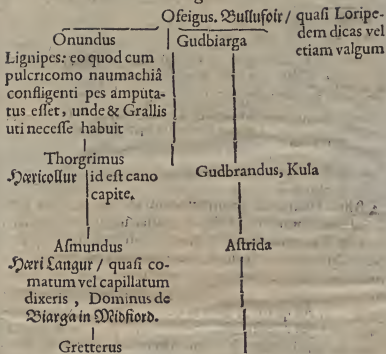 Ofeigus. Bullufoir / quaſi Loripe-
dem dicas vel
etiam valgum
Onundus
Lignipes: eo quod cum
pulcricomo naumachiâ
confligenti pes amputa-
tus eſſet, unde & Grallis
uti neceſſe habuit
Gudbiarga
Thorgrimus
Hæricollur id eſt cano
capite.
Gudbrandus, Kula
Aſmundus
Hæri Langur / quaſi co-
matum vel capillatum
dixeris, Dominus de
Biarga in Midfiord.
Aſtrida
Gretterus